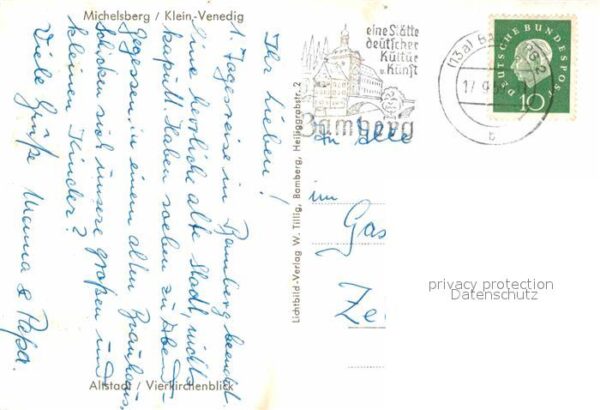 Michelsberg / Klein-Venedig
Ihr Lieben!
1. Tagesreise in Bamberg beendet.
Eine herrliche alte Stadt, nichts
kaputt. Haben soeben zu Abend
gegessen in einem alten Brauhaus.
Schicken sich unsere großen und
kleinen Kinder?
Viele Grüße Mama & Papa.
Altstadt / Vierkirchenblick
Lichtbild-Verlag W. Tillig, Bamberg, Heiliggrabstr. 2
eine Stätte
deutscher
Kultur
u. Kunst
Bamberg
(13a) Ba
2
17.9.
b
DEUTSCHE BUNDESPOST
10
im
Gas
Ze
privacy protection
Datenschutz